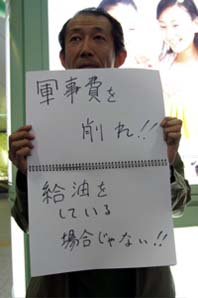 軍事費を
削れ!!
給油を
している
場合じゃない!!